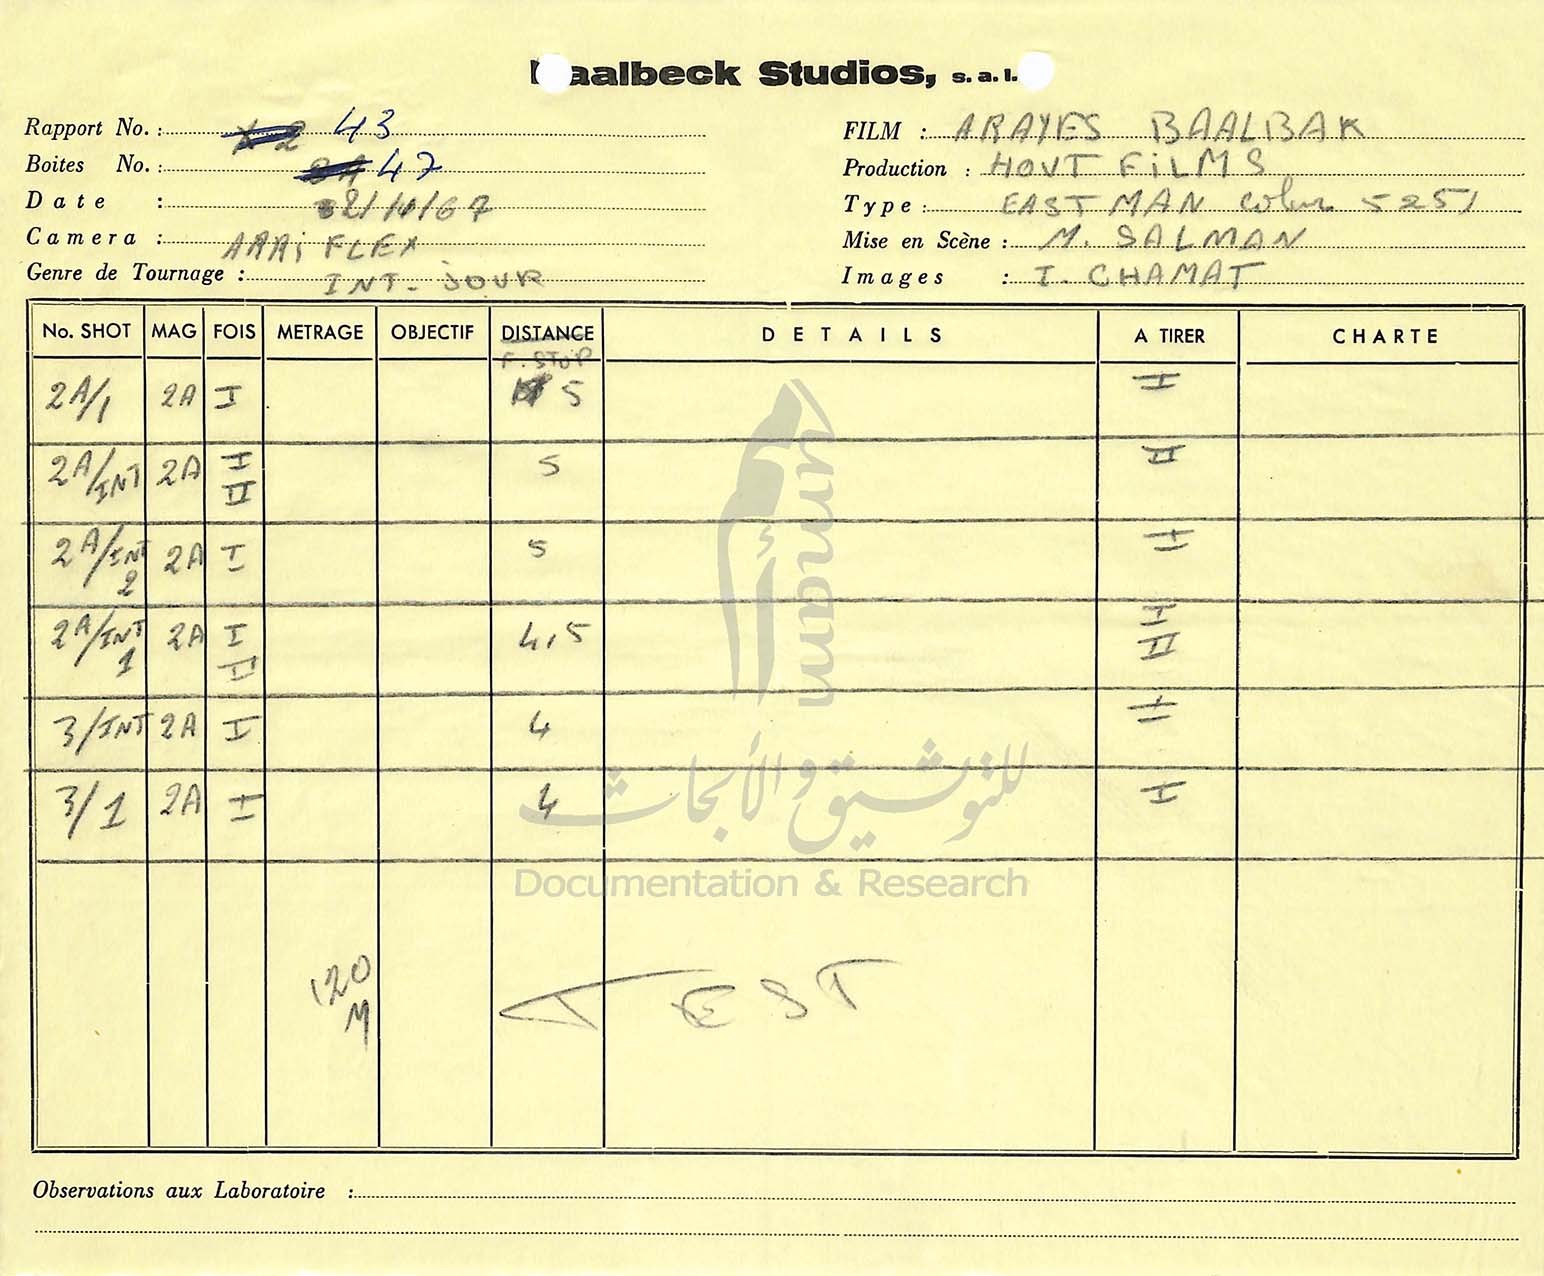 Baalbeck Studios, s.a.l.
Rapport No. : 43
Boites No. : 47
Date : 2/11/67
Camera : ARRiFLEX
Genre de Tournage : INT- JOUR
FILM : ARAYES BAALBAK
Production : HOVT FiLMS
Type : EASTMAN Color 5251
Mise en Scène : M. SALMAN
Images : I. CHAMAT
No. SHOT MAG FOIS METRAGE OBJECTIF DISTANCE DETAILS A TIRER CHARTE
F. STOP
2A/1 2A I 5 I
2A/INT 2A I II 5 II
2A/INT 2 2A I 5 I
2A/INT 1 2A I II 4,5 I II
3/INT 2A I 4 I
3/1 2A I 4 I
120 M TEST
Observations aux Laboratoire :
أمم
umam
للتوثيق والأبحاث
Documentation & Research